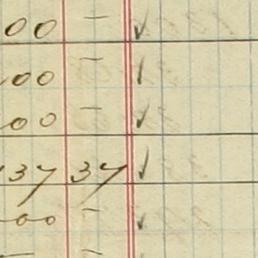 00 –
00 –
00 –
37 37
00 –
–